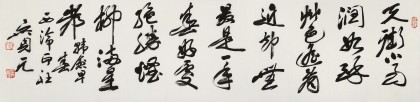 天街小雨
润如酥
草色遥看
近却無
最是一年
春好處
绝勝煙
柳满皇
都 韩愈早春
西泠印社